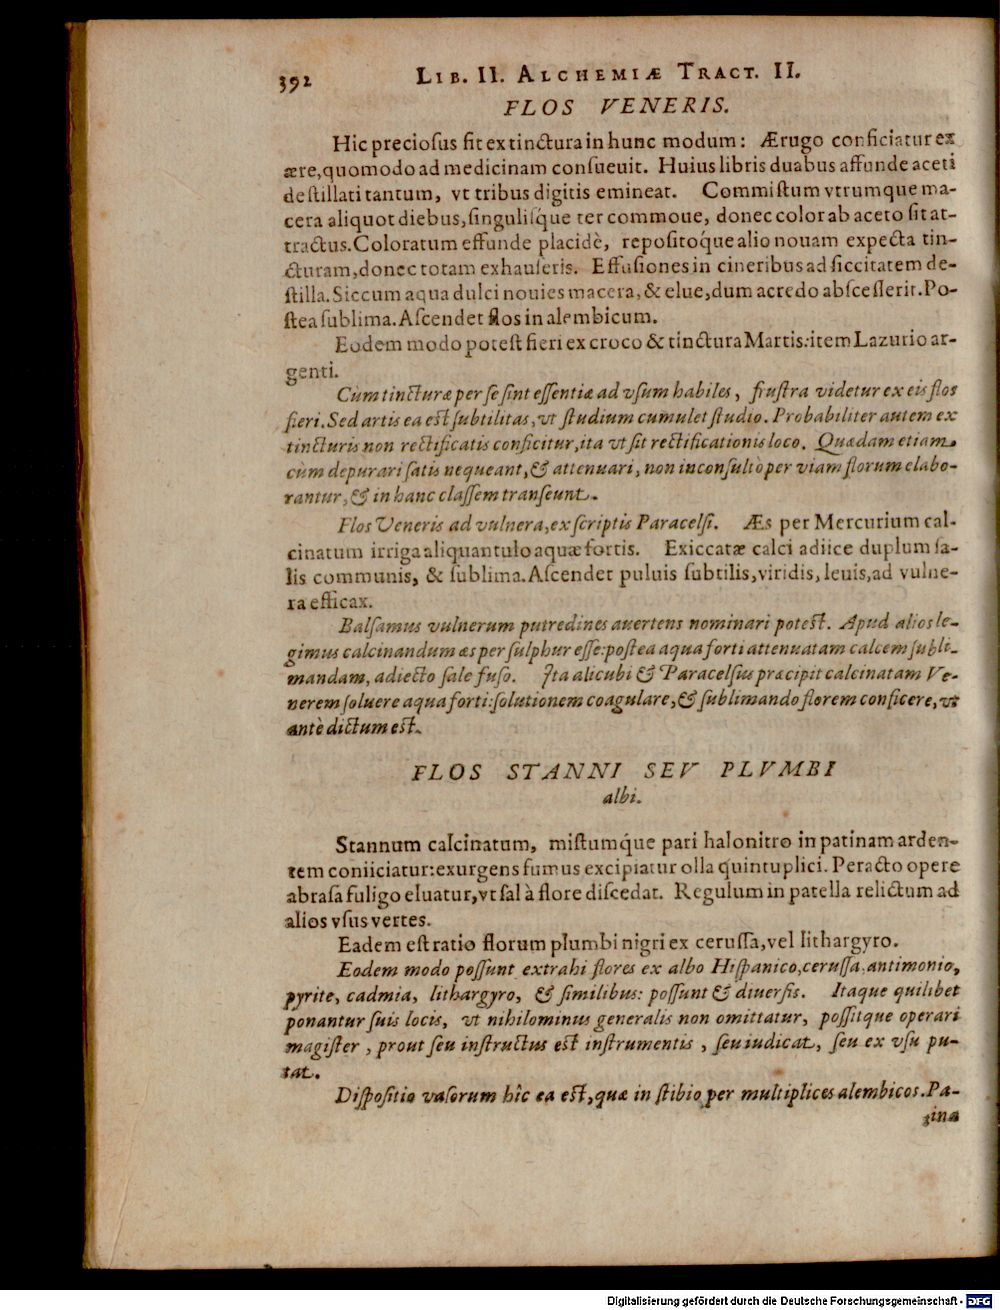 392 LIB. II. ALCHEMIÆ TRACT. II.
FLOS VENERIS.
Hic precioſus fit ex tinctura in hunc modum: Ærugo conficiatur ex
ære, quomodo ad medicinam conſueuit. Huius libris duabus affunde aceti
deſtillati tantum, vt tribus digitis emineat. Commiſtum vtrumque ma-
cera aliquot diebus, ſinguliſque ter commoue, donec color ab aceto ſit at-
tractus. Coloratum effunde placidè, repoſitoq́ue alio nouam expecta tin-
cturam, donec totam exhauſeris. Effuſiones in cineribus ad ſiccitatem de-
ſtilla. Siccum aqua dulci nouies macera, & elue, dum acredo abſceſſerit. Po-
ſtea ſublima. Aſcendet flos in alembicum.
Eodem modo poteſt fieri ex croco & tinctura Martis: item Lazurio ar-
genti.
Cùm tincturæ per ſe ſint eſſentiæ ad vſum habiles, fruſtra videtur ex eis flos
fieri. Sed artis ea eſt ſubtilitas, vt ſtudium cumulet ſtudio. Probabiliter autem ex
tincturis non rectificatis conficitur, ita vt ſit rectificationis loco. Quædam etiam
cùm depurari ſatis nequeant, & attenuari, non inconſultò per viam florum elabo-
rantur, & in hanc claſſem tranſeunt.
Flos Veneris ad vulnera, ex ſcriptis Paracelſi. Æs per Mercurium cal-
cinatum irriga aliquantulo aquæ fortis. Exiccatæ calci adiice duplum ſa-
lis communis, & ſublima. Aſcendet puluis ſubtilis, viridis, leuis, ad vulne-
ra efficax.
Balſamus vulnerum putredines auertens nominari poteſt. Apud alios le-
gimus calcinandum æs per ſulphur eſſe: poſtea aqua forti attenuatam calcem ſubli-
mandam, adiecto ſale fuſo. Ita alicubi & Paracelſus præcipit calcinatam Ve-
nerem ſoluere aqua forti: ſolutionem coagulare, & ſublimando florem conficere, vt
antè dictum eſt.
FLOS STANNI SEV PLVMBI
albi.
Stannum calcinatum, miſtumq́ue pari halonitro in patinam arden-
tem coniiciatur: exurgens fumus excipiatur olla quintuplici. Peracto opere
abraſa fuligo eluatur, vt ſal à flore diſcedat. Regulum in patella relictum ad
alios vſus vertes.
Eadem eſt ratio florum plumbi nigri ex ceruſſa, vel lithargyro.
Eodem modo poſſunt extrahi flores ex albo Hiſpanico, ceruſſa, antimonio,
pyrite, cadmia, lithargyro, & ſimilibus: poſſunt & diuerſis. Itaque quilibet
ponantur ſuis locis, vt nihilominus generalis non omittatur, poſſitque operari
magiſter, prout ſeu inſtructus eſt inſtrumentis, ſeu iudicat, ſeu ex vſu pu-
tat.
Diſpoſitio vaſorum hîc ea eſt, quæ in ſtibio per multiplices alembicos. Pa-
gina
Digitalisierung gefördert durch die Deutsche Forschungsgemeinschaft - DFG